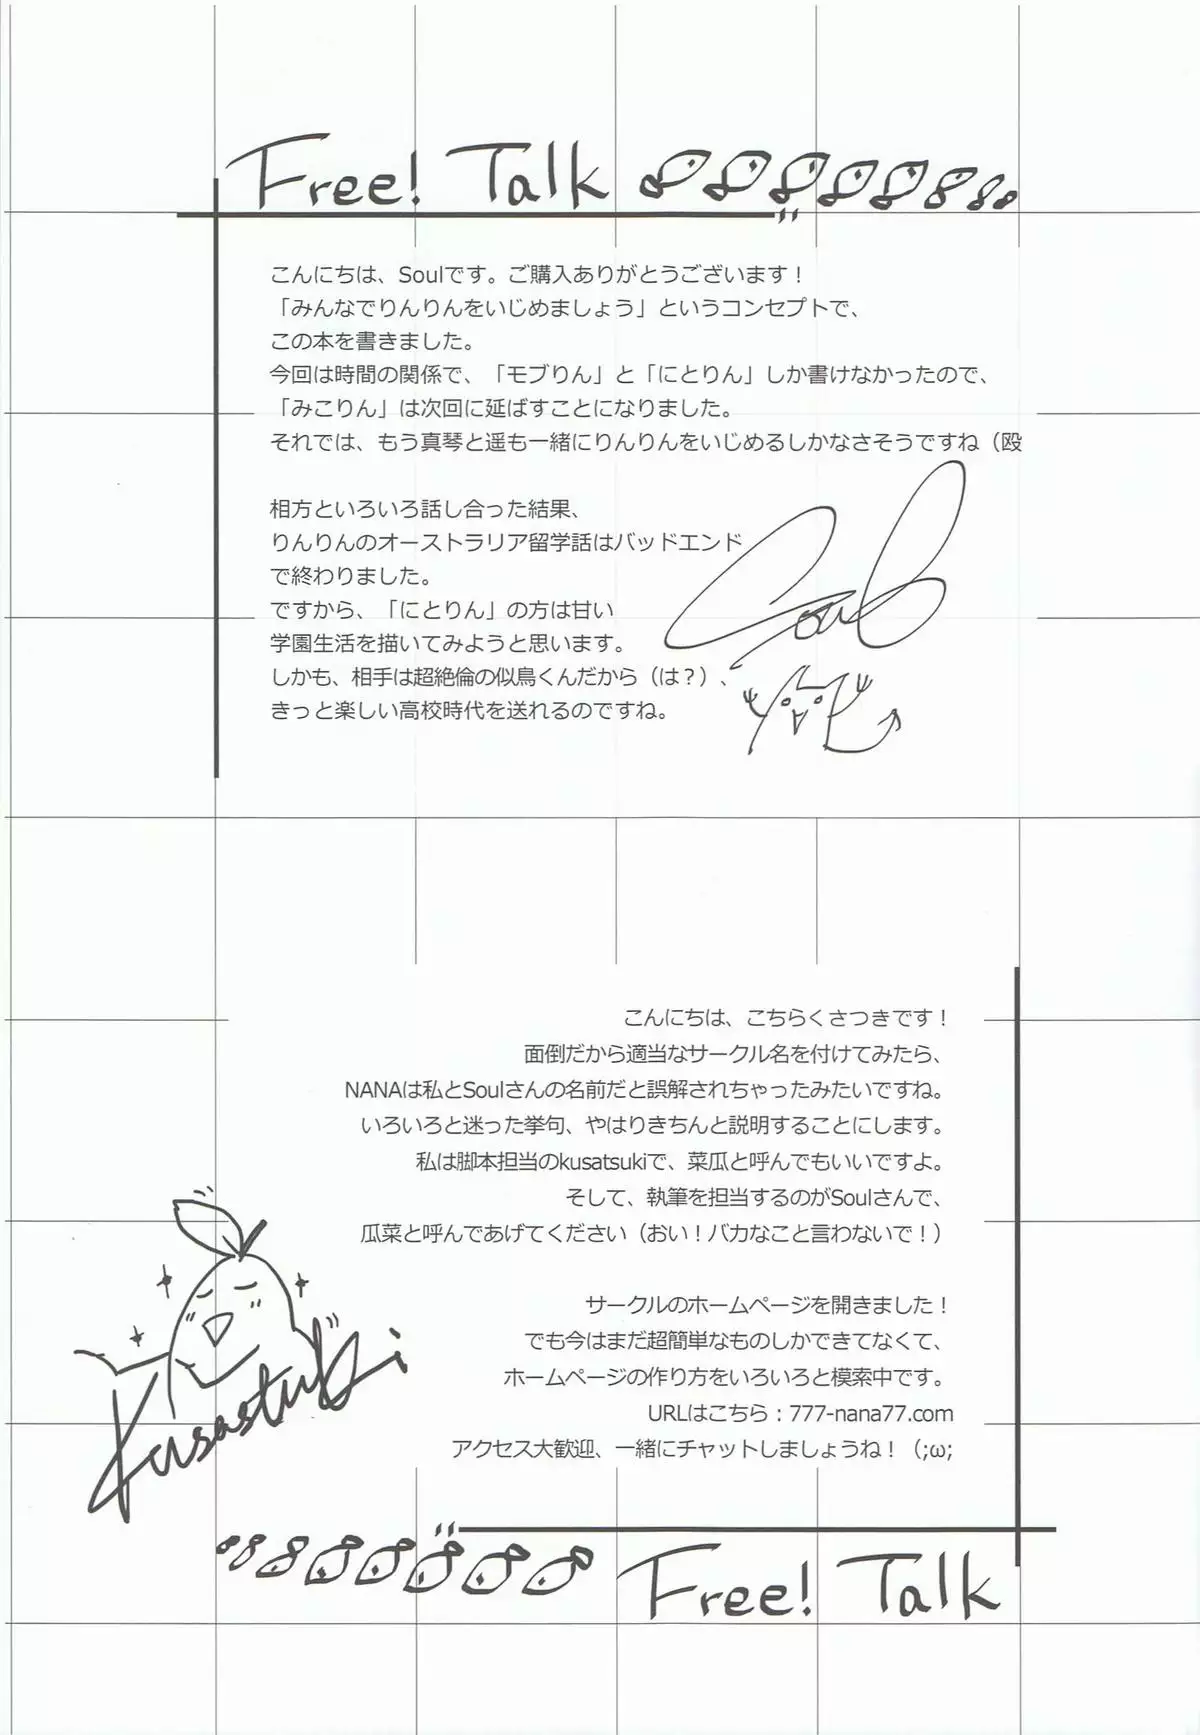 Free! Talk
こんにちは、Soulです。ご購入ありがとうございます！
「みんなでりんりんをいじめましょう」というコンセプトで、
この本を書きました。
今回は時間の関係で、「モブりん」と「にとりん」しか書けなかったので、
「みこりん」は次回に延ばすことになりました。
それでは、もう真琴と遥も一緒にりんりんをいじめるしかなさそうですね（殴
相方といろいろ話し合った結果、
りんりんのオーストラリア留学話はバッドエンド
で終わりました。
ですから、「にとりん」の方は甘い
学園生活を描いてみようと思います。
しかも、相手は超絶倫の似鳥くんだから（は？）、
きっと楽しい高校時代を送れるのですね。
Soul
こんにちは、こちらくさつきです！
面倒だから適当なサークル名を付けてみたら、
NANAは私とSoulさんの名前だと誤解されちゃったみたいですね。
いろいろと迷った挙句、やはりきちんと説明することにします。
私は脚本担当のkusatsukiで、菜瓜と呼んでもいいですよ。
そして、執筆を担当するのがSoulさんで、
瓜菜と呼んであげてください（おい！バカなこと言わないで！）
サークルのホームページを開きました！
でも今はまだ超簡単なものしかできてなくて、
ホームページの作り方をいろいろと模索中です。
URLはこちら：777-nana77.com
アクセス大歓迎、一緒にチャットしましょうね！（;ω;
Kusastuki
Free! Talk